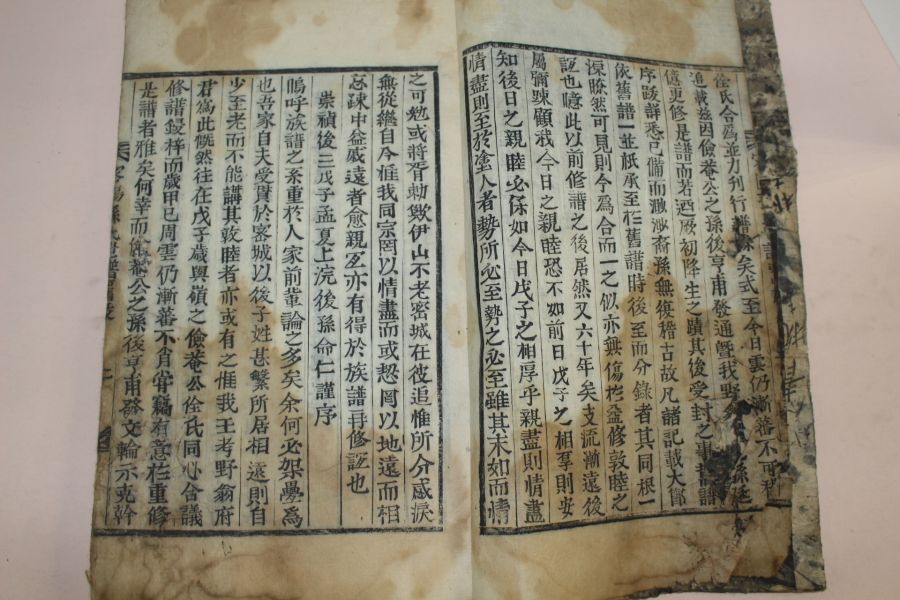 佺氏合爲並力刊行譜 矣式至今日雲仍漸蕃不可
追載兹因儉菴公之孫後亨甫發通曁我野
僖更修是譜而若迺厥初降生之蹟其後受封之事
序跋詳悉已備而渺渺裔孫無復稽古故凡諸記載大
依舊譜一並祇承至於舊譜時後至而分錄者其同根一
深瞭然可見則今爲合而一之似亦無傷於益修敦睦之
誼也噫此以前修譜之後居然又六十年矣支流漸遠後
屬彌踈顧我今日之親睦恐不如前日戊子之相孚則安
知後日之親睦必保如今日戊子之相厚乎親盡則情盡
情盡則至於塗人者勢所必至勢之必至雖其末如而情
之可勉或將胥勅歟伊山不老密城在彼追惟所分感淚
無從繼自今惟我同宗罔以情盡而或恝罔以地遠而相
忘踈中益戚遠者愈親叐亦有得於族譜再修誼也
崇禎後三戊子孟夏上浣後孫命仁謹序
嗚呼族譜之系重於人家前輩論之多矣余何必架疊爲
也吾家自夫受貫於密城以後子姓甚繁所居相遠則自
少至老而不能講其敦睦者亦或有之惟我王考野翁府
君爲此慨然往在戊子歲與嶺之儉菴公佺氏同心合議
修譜鋟梓而歲甲已周雲仍漸蕃不肖常竊有意於重修
是譜者雅矣何幸而儉菴公之孫後亨甫發文輪示克幹